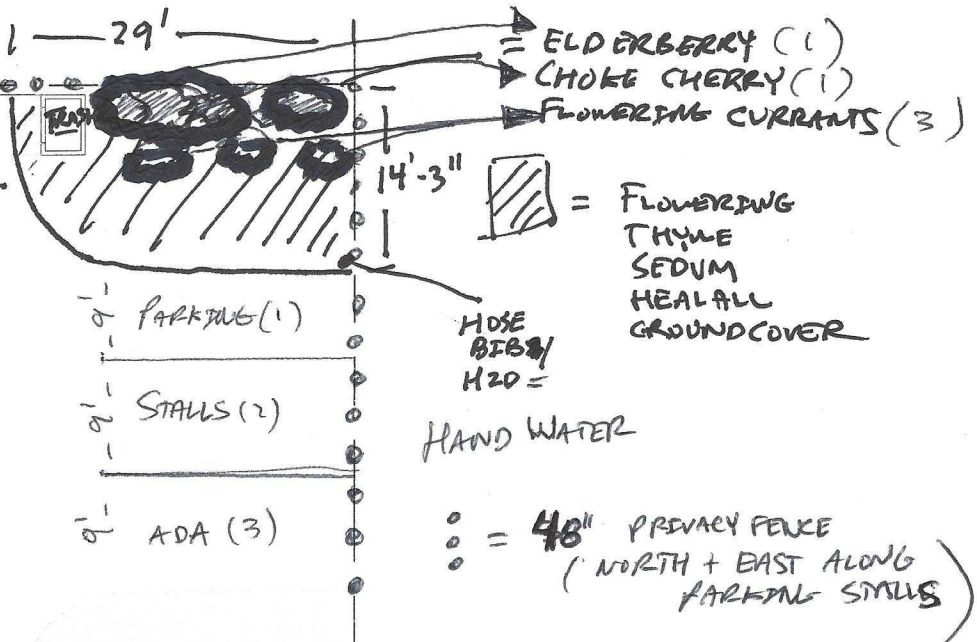 29'
= ELDERBERRY (1)
CHOKE CHERRY (1)
FLOWERING CURRANTS (3)
TRASH
14'-3"
= FLOWERING
THYME
SEDUM
HEALALL
GROUNDCOVER
9' PARKING (1)
HOSE
BIBB/
H2O =
9' STALLS (2)
HAND WATER
9' ADA (3)
= 48" PRIVACY FENCE
(NORTH + EAST ALONG
PARKING STALLS)